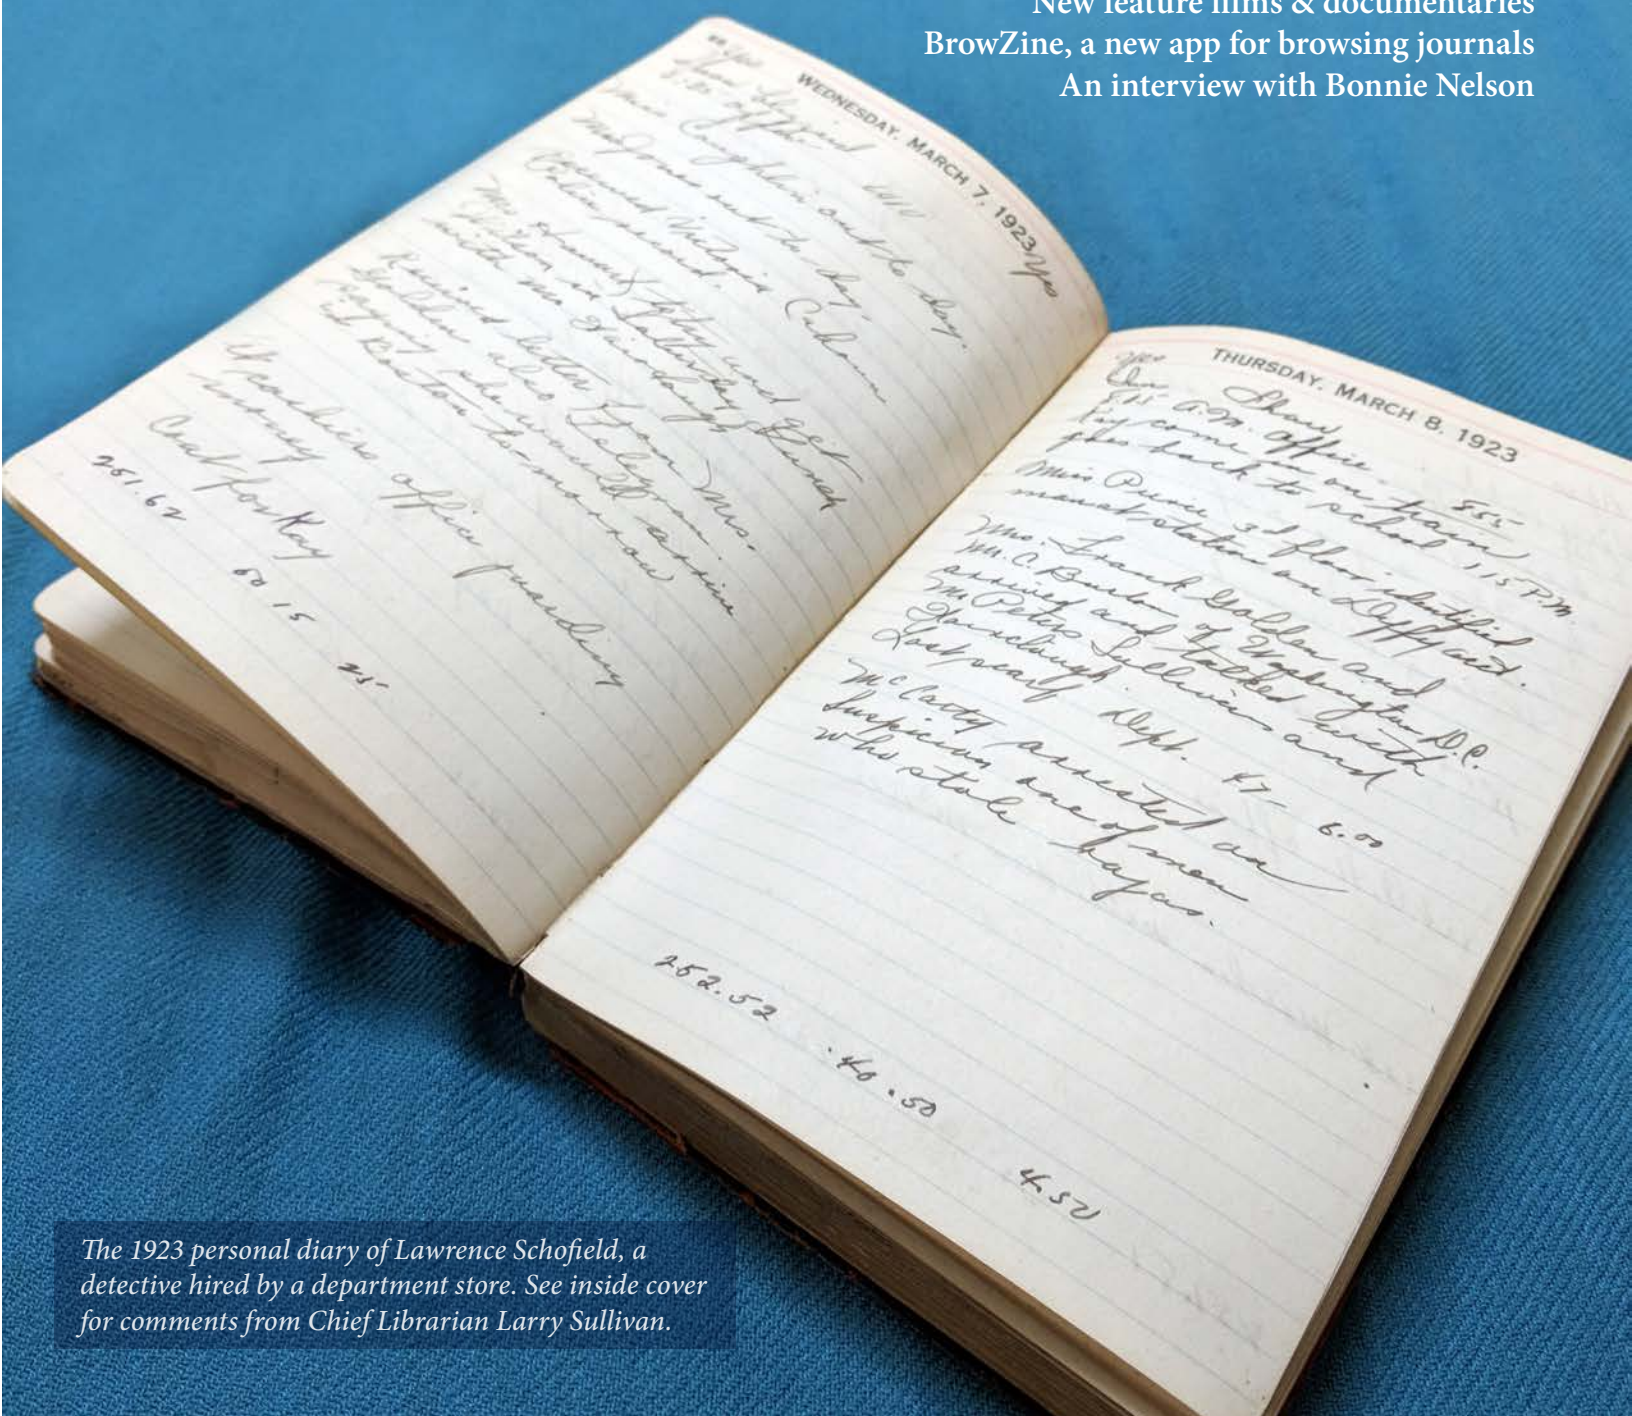 New feature films & documentaries
BrowZine, a new app for browsing journals
An interview with Bonnie Nelson
WEDNESDAY, MARCH 7, 1923
Yes
Yes
8:20 office
Miss Coughlin out to day.
Miss Jones out to day
Calhoun
Mr
and get
in Saturday Lunch
with Mr Fairclough
Received letter from Mrs.
Golden also Telegram.
saying she would arrive
in Boston to-morrow
Up cashiers office guarding
money
Coat for Kay
251.62
60 15
25
THURSDAY, MARCH 8, 1923
Yes
Shaw
A.M. office. 8:55
Fay come in on train
goes back to school 1,15 P.M.
Miss 3d floor identified
man at station
Mrs. Frank Golden and
M. C. of Washington D.C.
arrived and talked with
Mr Peters Sullivan and
Fairclough.
Lost scarf Dept. 47- 6.00
McCarty arrested on
Suspicion one of men
who stole
252.52
.40.50
4.50
The 1923 personal diary of Lawrence Schofield, a
detective hired by a department store. See inside cover
for comments from Chief Librarian Larry Sullivan.